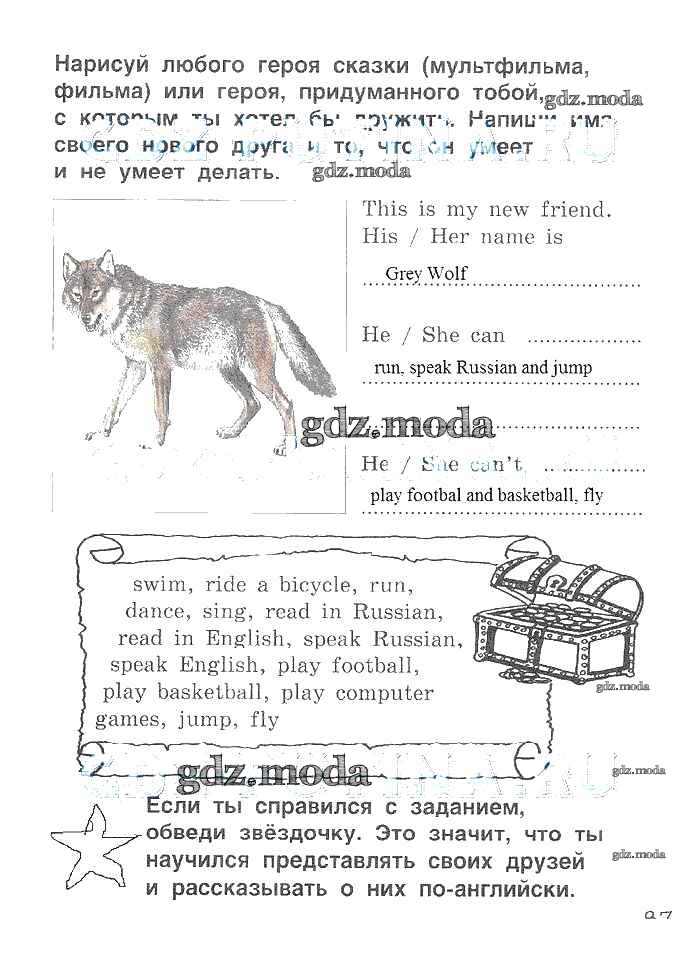 Нарисуй любого героя сказки (мультфильма,
фильма) или героя, придуманного тобой,
gdz.moda
с которым ты хотел бы дружить. Напиши имя
своего нового друга и то, что он умеет
и не умеет делать.
gdz.moda
This is my new friend.
His / Her name is
Grey Wolf
He / She can
run, speak Russian and jump
gdz.moda
He / She can't
play footbal and basketball, fly
swim, ride a bicycle, run,
dance, sing, read in Russian,
read in English, speak Russian,
speak English, play football,
play basketball, play computer
games, jump, fly
gdz.moda
gdz.moda
gdz.moda
Если ты справился с заданием,
обведи звёздочку. Это значит, что ты
научился представлять своих друзей
и рассказывать о них по-английски.
gdz.moda